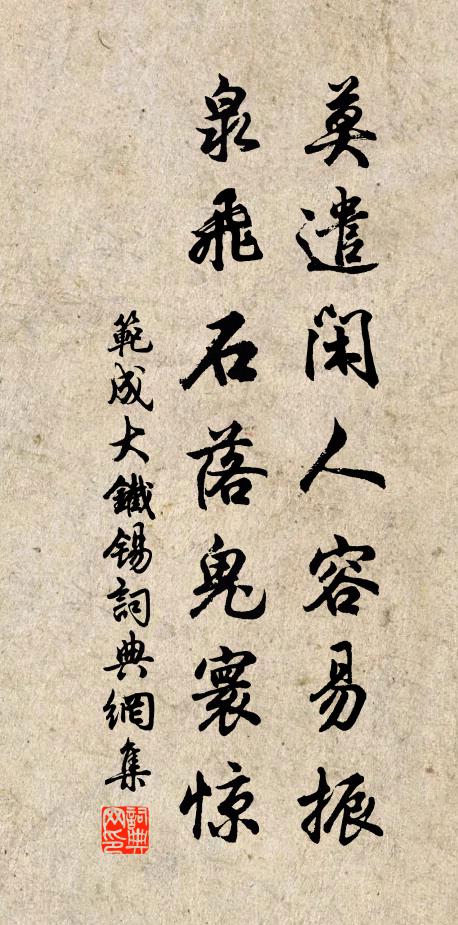 莫遣閑人容易振
泉飛石落鬼寰惊
範成大鐵锡詞典網集
詞典網印